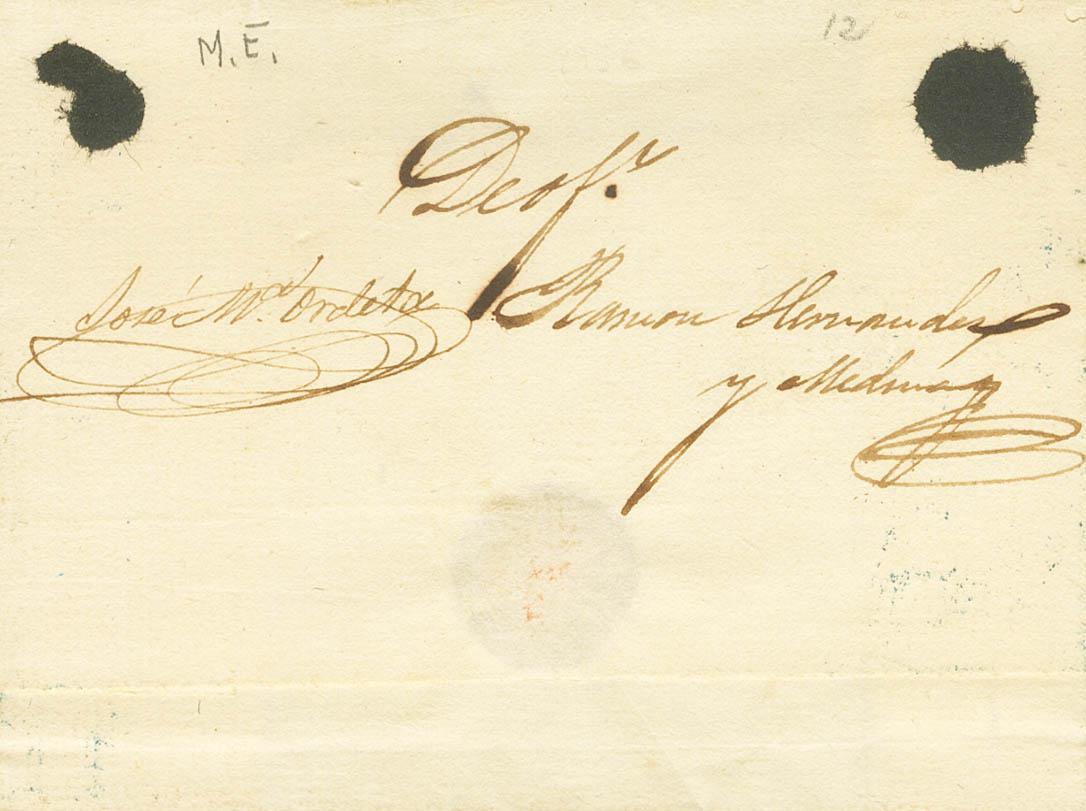 M.E.
12
De of.r
José M.a Ordeta
Ramon Hernandez
y Medina